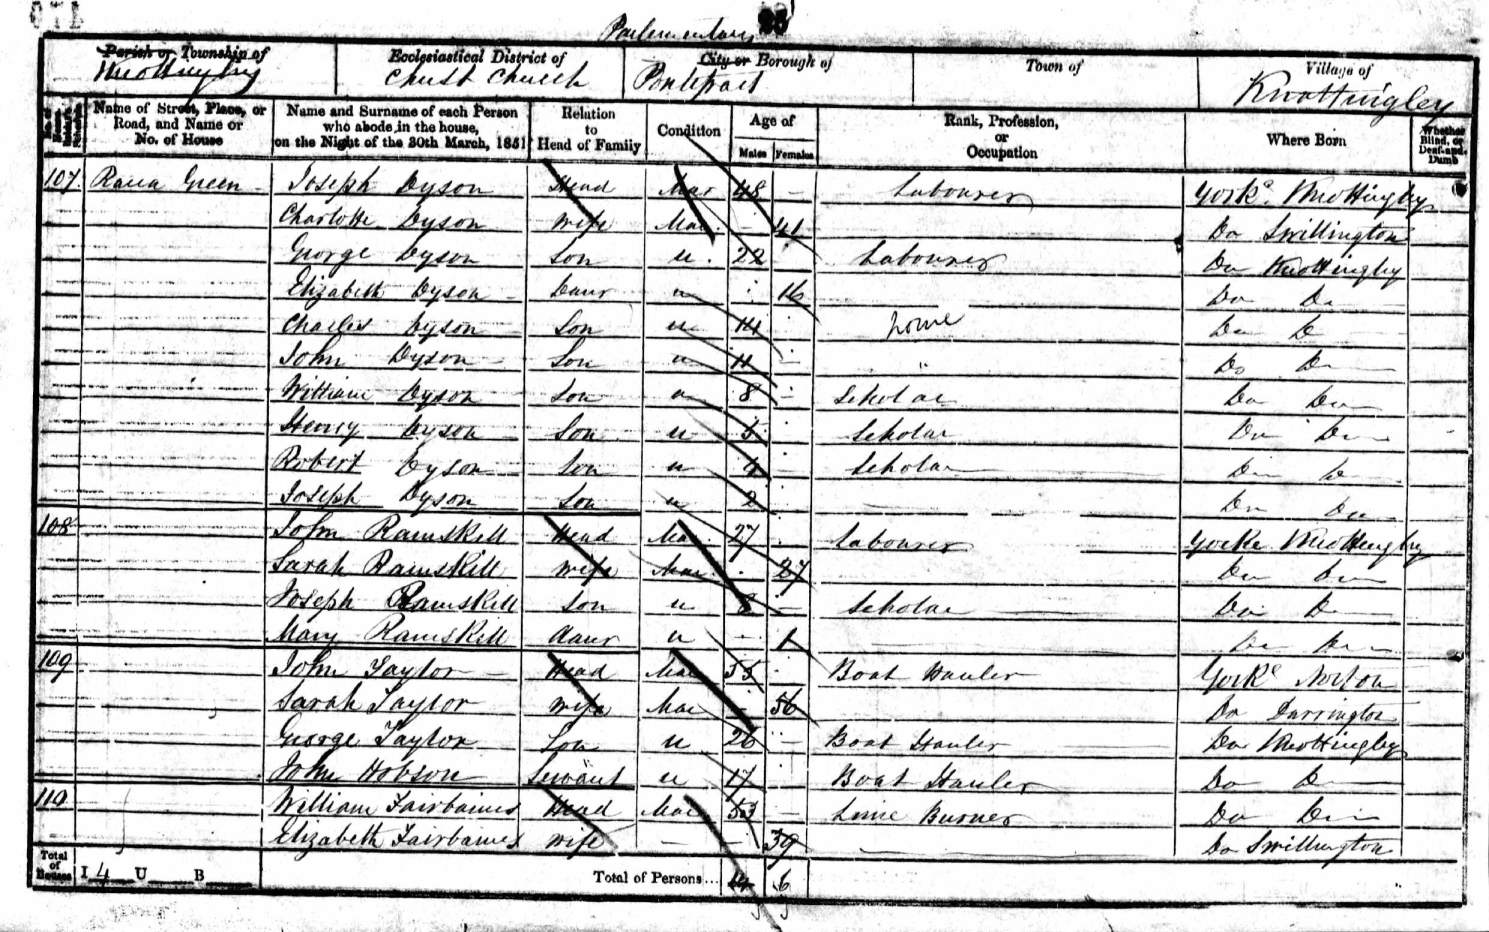 Parlementary
Parish or Township of Ecclesiastical District of City or Borough of Town of Village of
Knottingley Christ Church Pontefract Knottingley
Name of Street, Place, or Road, and Name or No. of House
Name and Surname of each Person who abode in the house, on the Night of the 30th March, 1851
Relation to Head of Family
Condition
Age of Males Females
Rank, Profession, or Occupation
Where Born
Whether Blind, or Deaf-and-Dumb
107 Raua Green Joseph Dyson Head Mar 48 — Labourer York. Knottingley
Charlotte Dyson Wife Mar. — 41 Do Swillington
George Dyson Son u. 22 Labourer Do Knottingley
Elizabeth Dyson Daur u 16 Do Do
Charles Dyson Son u 14 home Do Do
John Dyson Son u 11 — " Do Do
William Dyson Son u 8 — Scholar Do Do
Henry Dyson Son u 5 Scholar Do Do
Robert Dyson Son u 4 — Scholar Do Do
Joseph Dyson Son u 2 Do Do
108 John Ramskill Head Mar. 27 Labourer Yorke Knottingley
Sarah Ramskill Wife Mar. 27 Do Do
Joseph Ramskill Son u 2 — Scholar Do Do
Mary Ramskill daur u — 1 Do Do
109 John Taylor Head Mar 55 Boat Hauler York Norton
Sarah Taylor Wife Mar 56 Do Darrington
George Taylor Son u 26 — Boat Hauler Do Knottingley
John Hobson Servant u 17 Boat Hauler Do Do
110 William Fairbaines Head Mar 53 — Lime Burner Do Do
Elizabeth Fairbaines Wife — — 39 — Do Swillington
Total of Houses I 4 U B Total of Persons... 14 6